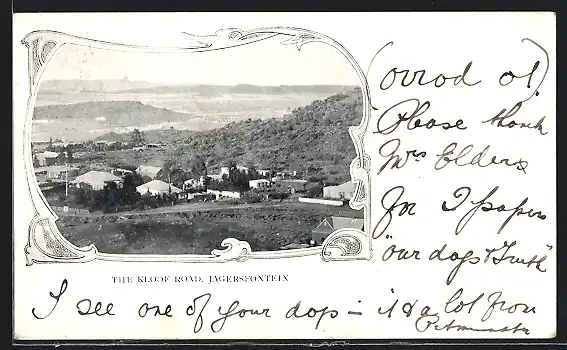 Please thank
Mrs Elders
for 2 papers
"our dogs & Truth"
THE KLOOF ROAD, JAGERSFONTEIN
I see one of your dogs – & a lot from